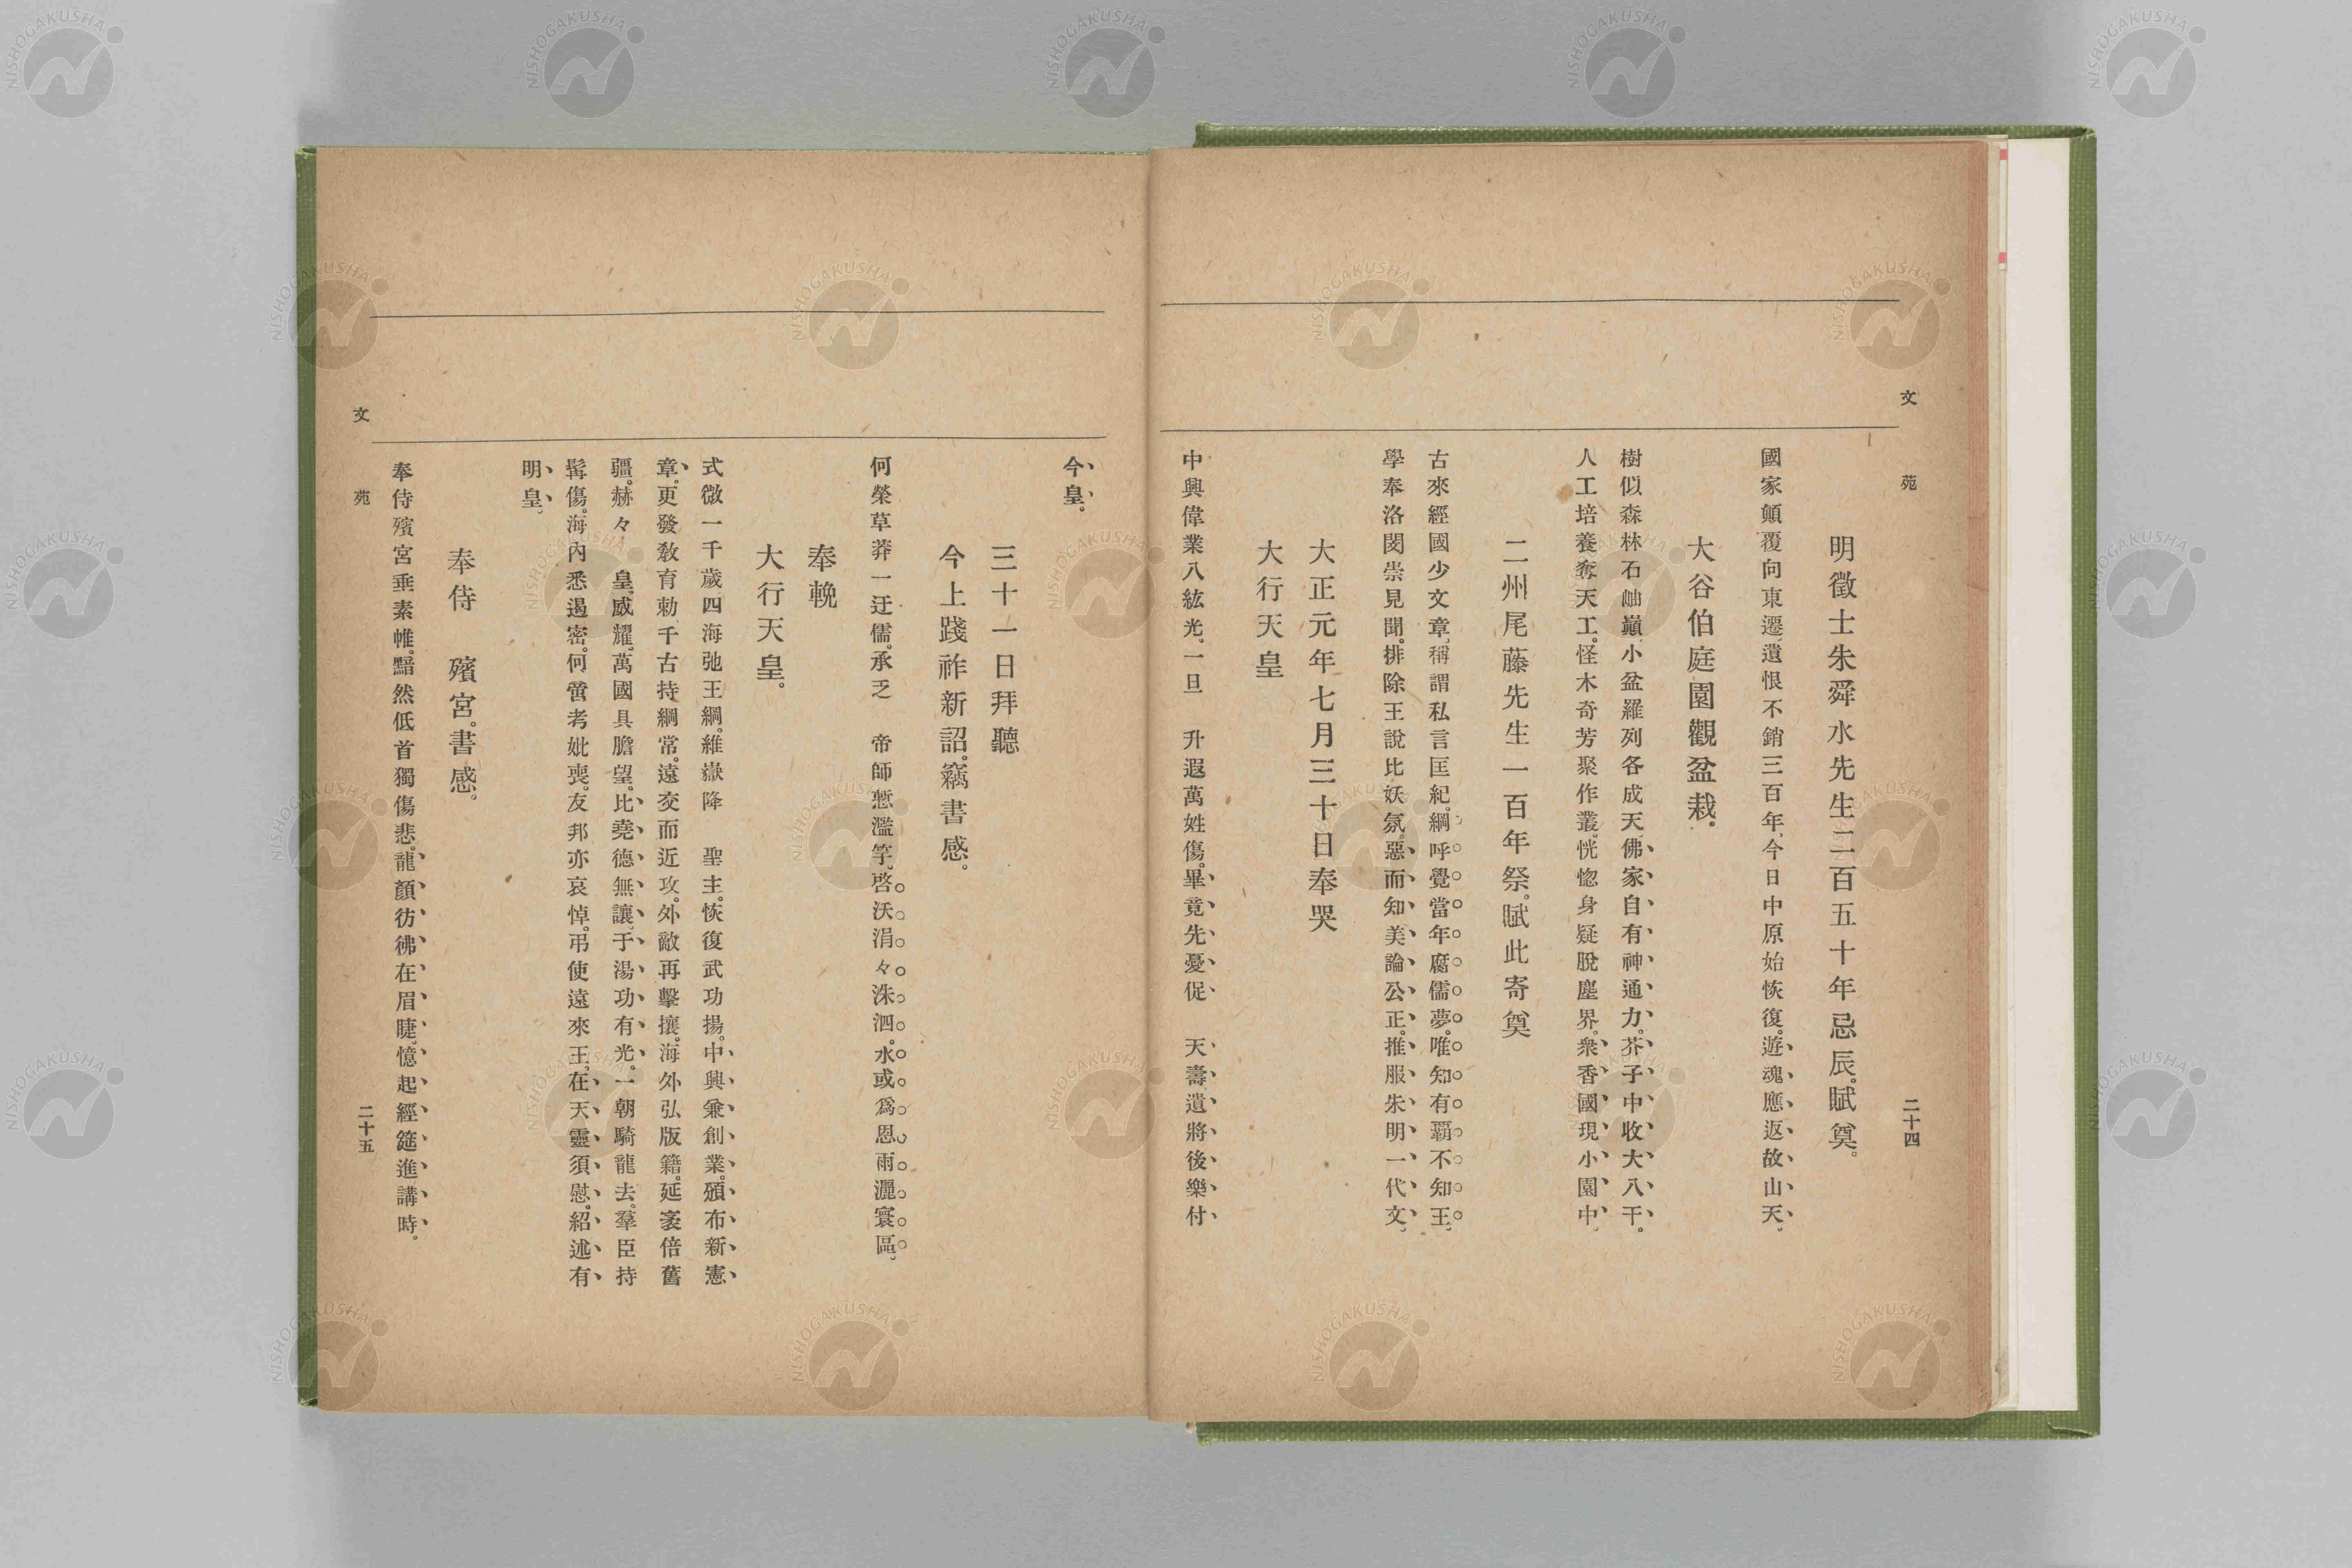 文苑
二十四
明徵士朱舜水先生二百五十年忌辰。賦奠。
國家顛覆向東遷、遺恨不銷三百年、今日中原始恢復。遊魂應返故山天。
大谷伯庭園觀盆栽。
樹似森林石岫巓、小盆羅列各成天、佛家自有神通力。芥子中收大八千。
人工培養奪天工。怪木奇芳聚作叢。恍惚身疑脫塵界。衆香國現小園中、
二州尾藤先生一百年祭。賦此寄奠
古來經國少文章、稱謂私言匡紀綱、呼覺當年腐儒夢。唯知有覇不知王、
學奉洛閩崇見聞。排除王說比妖氛。惡而知美論公正。推服朱明一代文、
大正元年七月三十日奉哭
大行天皇
中興偉業八紘光、一旦 升遐萬姓傷。畢竟先憂促 天壽、遺將後樂付
今皇。
三十一日拜聽
今上踐祚新詔。竊書感。
何榮草莽一迂儒。承乏 帝師慙濫竽、啓沃涓々洙泗水。或爲恩雨灑寰區、
奉輓
大行天皇。
式微一千歲四海弛王綱。維嶽降 聖主。恢復武功揚。中興兼創業。頒布新憲
章。更發敎育勅千古持綱常。遠交而近攻。外敵再擊攘。海外弘版籍。延袤倍舊
疆。赫々 皇威耀、萬國具膽望。比堯德無讓、于湯功有光。一朝騎龍去。羣臣持
髯傷。海內悉遏密。何啻考妣喪。友邦亦哀悼。弔使遠來王、在天靈須慰。紹述有
明皇。
奉侍 殯宮。書感。
奉侍殯宮垂素帷。黯然低首獨傷悲。龍顏彷彿在眉睫、憶起經筵進講時。
文苑
二十五
NISHOGAKUSHA